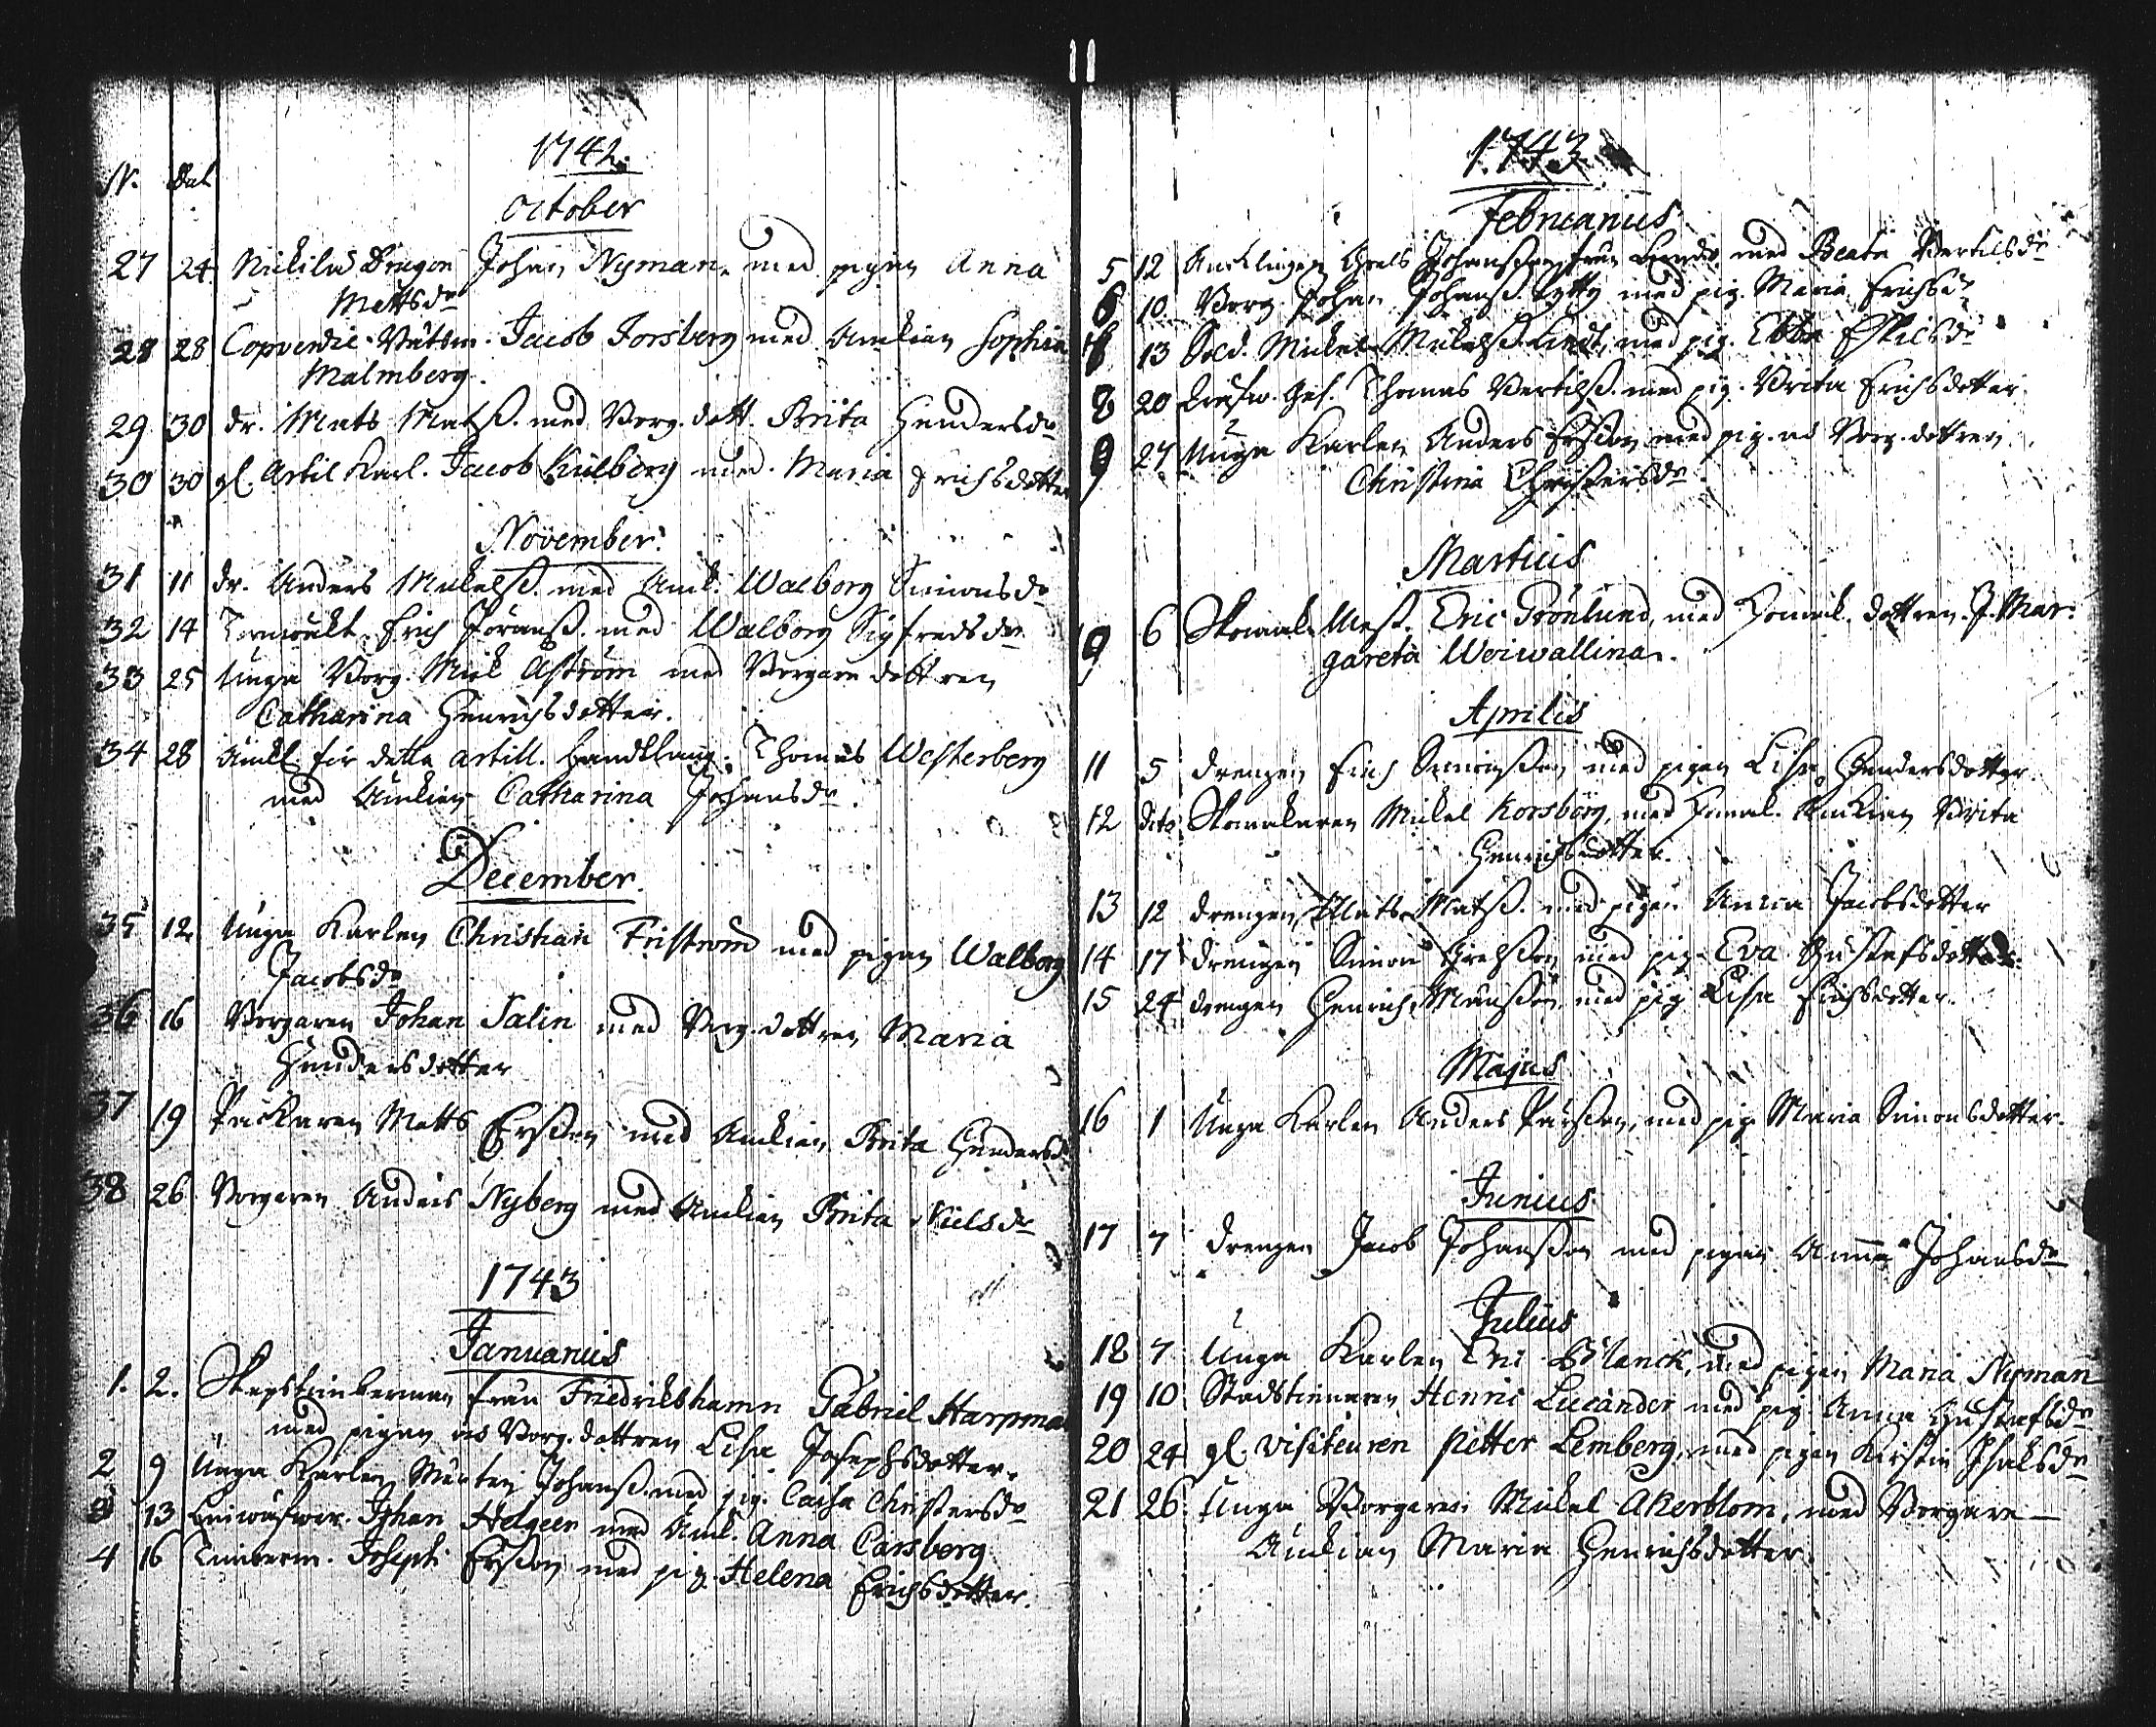 1742
N. Dat
October
27 24 Dragon Johan Nyman med pigan Anna
Mattsdr
28 28 Jacob Forsberg med Änkian Sophia
Malmberg.
29 30 dr. Mats Matss. med Borg. dott. Brita Hindersdr
30 30 gl. Artil Karl. Jacob Kulberg med Maria Erichsdotter
November
31 11 dr. Anders Mickelss. med Änk. Walborg Simonsdr
32 14 Erich Jöranss. med Walborg Sigfredsdr
33 25 Unga Borg. Mick Åström med Borgare dottren
Catharina Henrichsdotter.
34 28 Änkl. för detta artill. Handtlang. Thomas Westerberg
med Änkian Catharina Johansdr.
December
35 12 Unga Karlen Christian Friström med pigan Walborg
Jacobsdr
36 16 Borgaren Johan Salin med Borg. dottren Maria
Hindersdotter
37 19 Packaren Matts Ersson med Änkian Brita Hindersdr
38 26 Borgaren Anders Nyberg med Änkian Brita Nielsdr
1743
Januarius
1. 2. Skepstimberman från Friedrikshamn Gabriel Harpman
med pigan Borg. dottren Lisa Josephsdotter.
2 9 Unga Karlen Mårten Johanss. med pig. Caisa Christersdr
3 13 Johan Helgeen med Änk. Anna Carsberg
4 16 Timberm. Joseph Ersson med pig. Helena Erichsdotter.
1743
Februarius
5 12 Johansson från med Beata Bertilsdr
6 10 Borg. Johan Johanss. med pig. Maria Erichsdr
13 Sold. Mickel Mickelss. med pig. Ebba Eskilsdr
8 20 Ges. Thomas Bertilss. med pig. Brita Erichsdotter
9 27 Unga Karlen Anders Ersson med pig. Borg. dottren
Christina Christersdr
Martius
9 6 Skomak. Gess. Eric Grönlund, med dottren J. Mar-
gareta Weiwallina.
Aprilis
11 5 drengen Erich Simonsson med pigan Lisa Hindersdotter.
12 dito Skomakaren Mickel Korsberg, med Änkian Brita
Henrichsdotter.
13 12 drengen Matts Matss. med pigan Anna Jacobsdotter
14 17 drengen Simon Grelsson med pig. Eva Gustafsdotter.
15 24 drengen Henrich Månsson med pig Lisa Erichsdotter.
Majus
16 1 Unga Karlen Anders Pärsson, med pig Maria Simonsdotter.
Junius
17 7 drengen Jacob Johansson med pigan Anna Johansdr
Julius
18 7 Unga Karlen Eric Blanck, med pigan Maria Nyman
19 10 Stadstienaren Henric Lucander med pig. Anna Gustafsdr
20 24 gl. Visiteuren Petter Lemberg, med pigan Kirstin Isaksdr
21 26 Unga Borgaren Mickel Åkerblom, med Borgare
Änkian Maria Henrichsdotter.